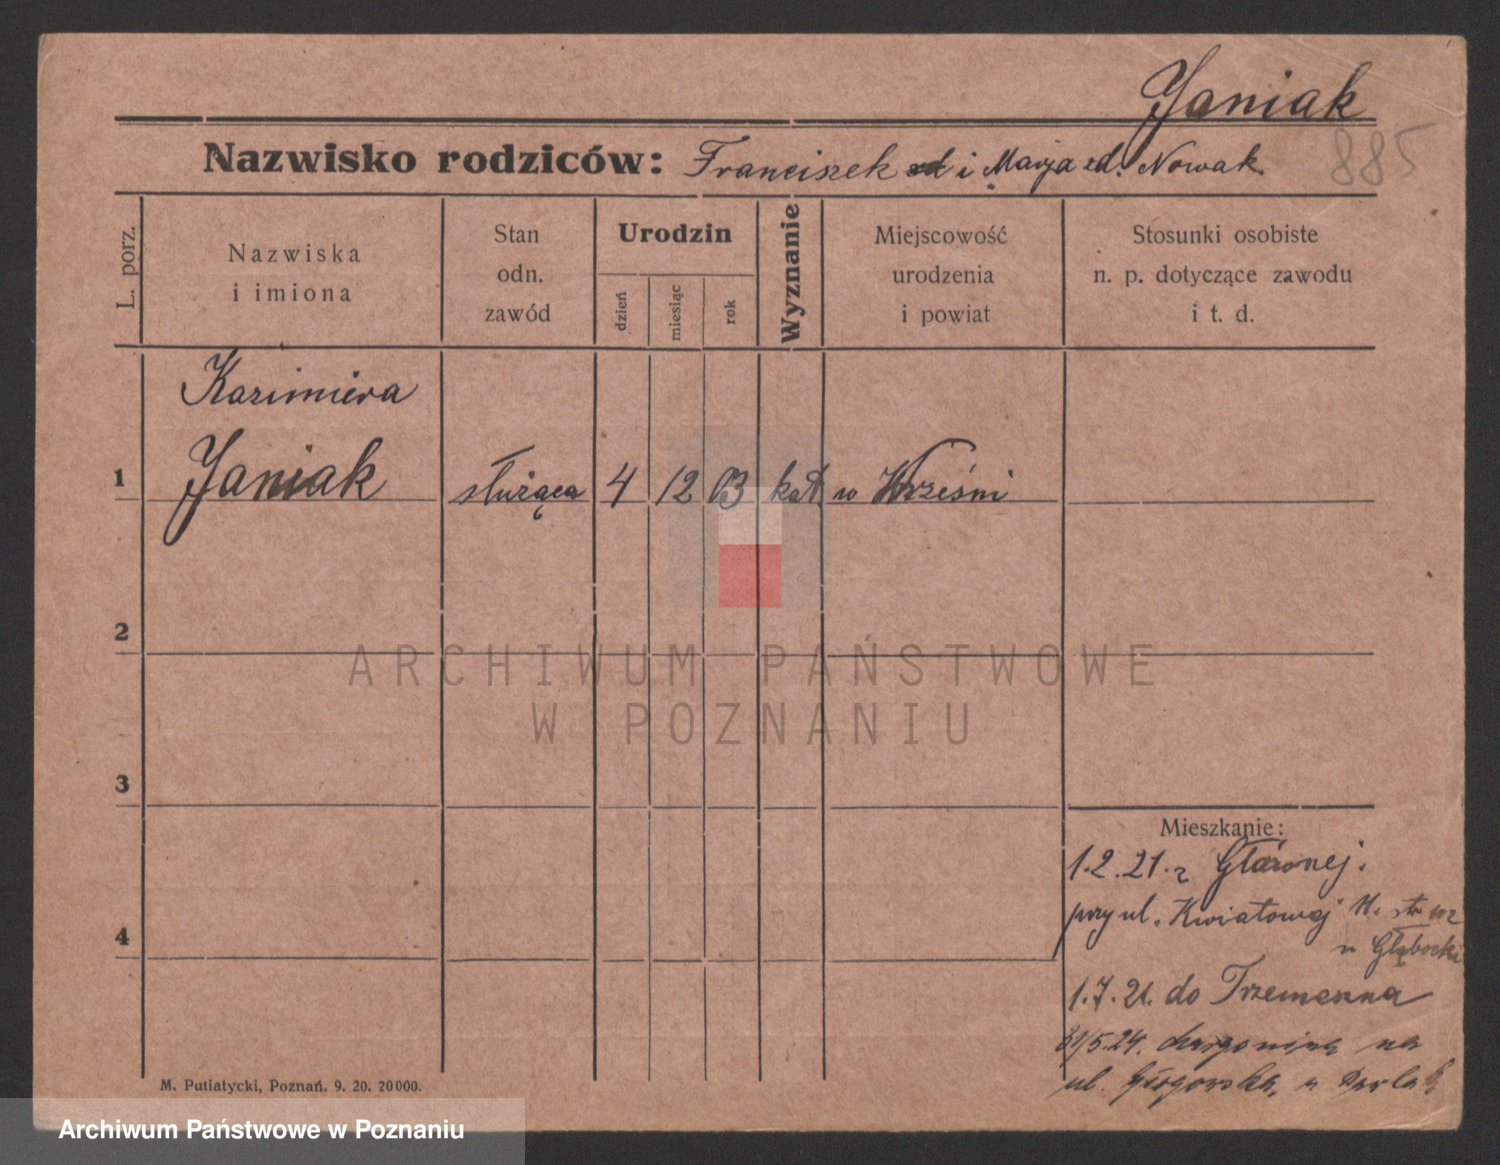 Janiak
885
Nazwisko rodziców: Franciszek i Marja zd. Nowak
L. porz.
Nazwiska
i imiona
Stan
odn.
zawód
Urodzin
dzień
miesiąc
rok
Wyznanie
Miejscowość
urodzenia
i powiat
Stosunki osobiste
n. p. dotyczące zawodu
i t. d.
Kazimiera
1 Janiak służąca 4 12 03 kat. w Wrześni
2
ARCHIWUM PAŃSTWOWE
W POZNANIU
3
Mieszkanie:
1.2.21. z
przy ul. Kwiatowej 11.
4
1.7.21. do Trzemeszna
31/5.24. na
ul.
M. Putiatycki, Poznań. 9. 20. 20000.
Archiwum Państwowe w Poznaniu